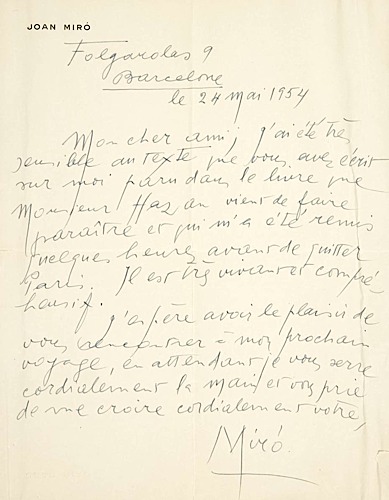 JOAN MIRÓ
Folgarolas 9
Barcelone
le 24 mai 1954
Mon cher ami, j'ai été très
sensible au texte que vous avez écrit
sur moi paru dans le livre que
Monsieur Hazan vient de faire
paraître et qui m'a été remis
quelques heures avant de quitter
Paris. Il est très vivant et compré
hensif.
J'espère avoir le plaisir de
vous rencontrer à mon prochain
voyage, en attendant je vous serre
cordialement la main et vous prie
de me croire cordialement votre,
Miró.